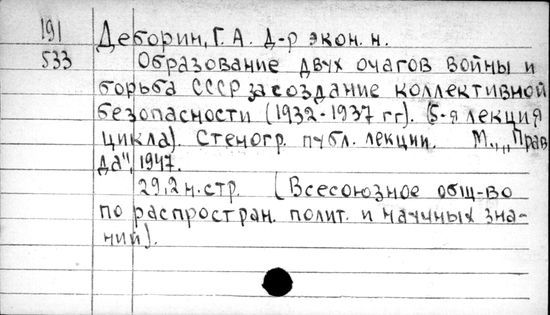 191 Деборин, Г. А. д-р экон. н.
533 Образование двух очагов войны и
борьба СССР за создание коллективной
безопасности (1932-1937 гг). (5-я лекция
цикла). Стеногр. публ. лекции. М., „Прав
да", 1947.
29,2 н. стр. (Всесоюзное общ-во
по распростран. полит. и научных зна-
ний).